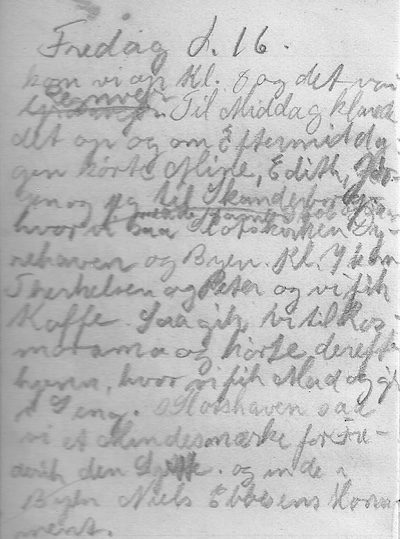 Fredag d. 16.
kom vi op Kl. 8 og det var
Regnvejr. Til Middag klarede
det op og om Eftermidda-
gen kørte Mine, Edith, Jør-
gen og jeg til Skanderborg,
hvor vi saa Slotskirken Dy-
rehaven og Byen. Kl. 7 kom
Therkelsen og Peter og vi fik
Kaffe. Saa gik vi til Kos-
morama og kørte derefter
hjem, hvor vi fik Mad og gik
i Seng. I Slotshaven saa
vi et Mindesmærke for Fre-
derik den og inde i
Byen Niels Ebbesens Monu-
ment.